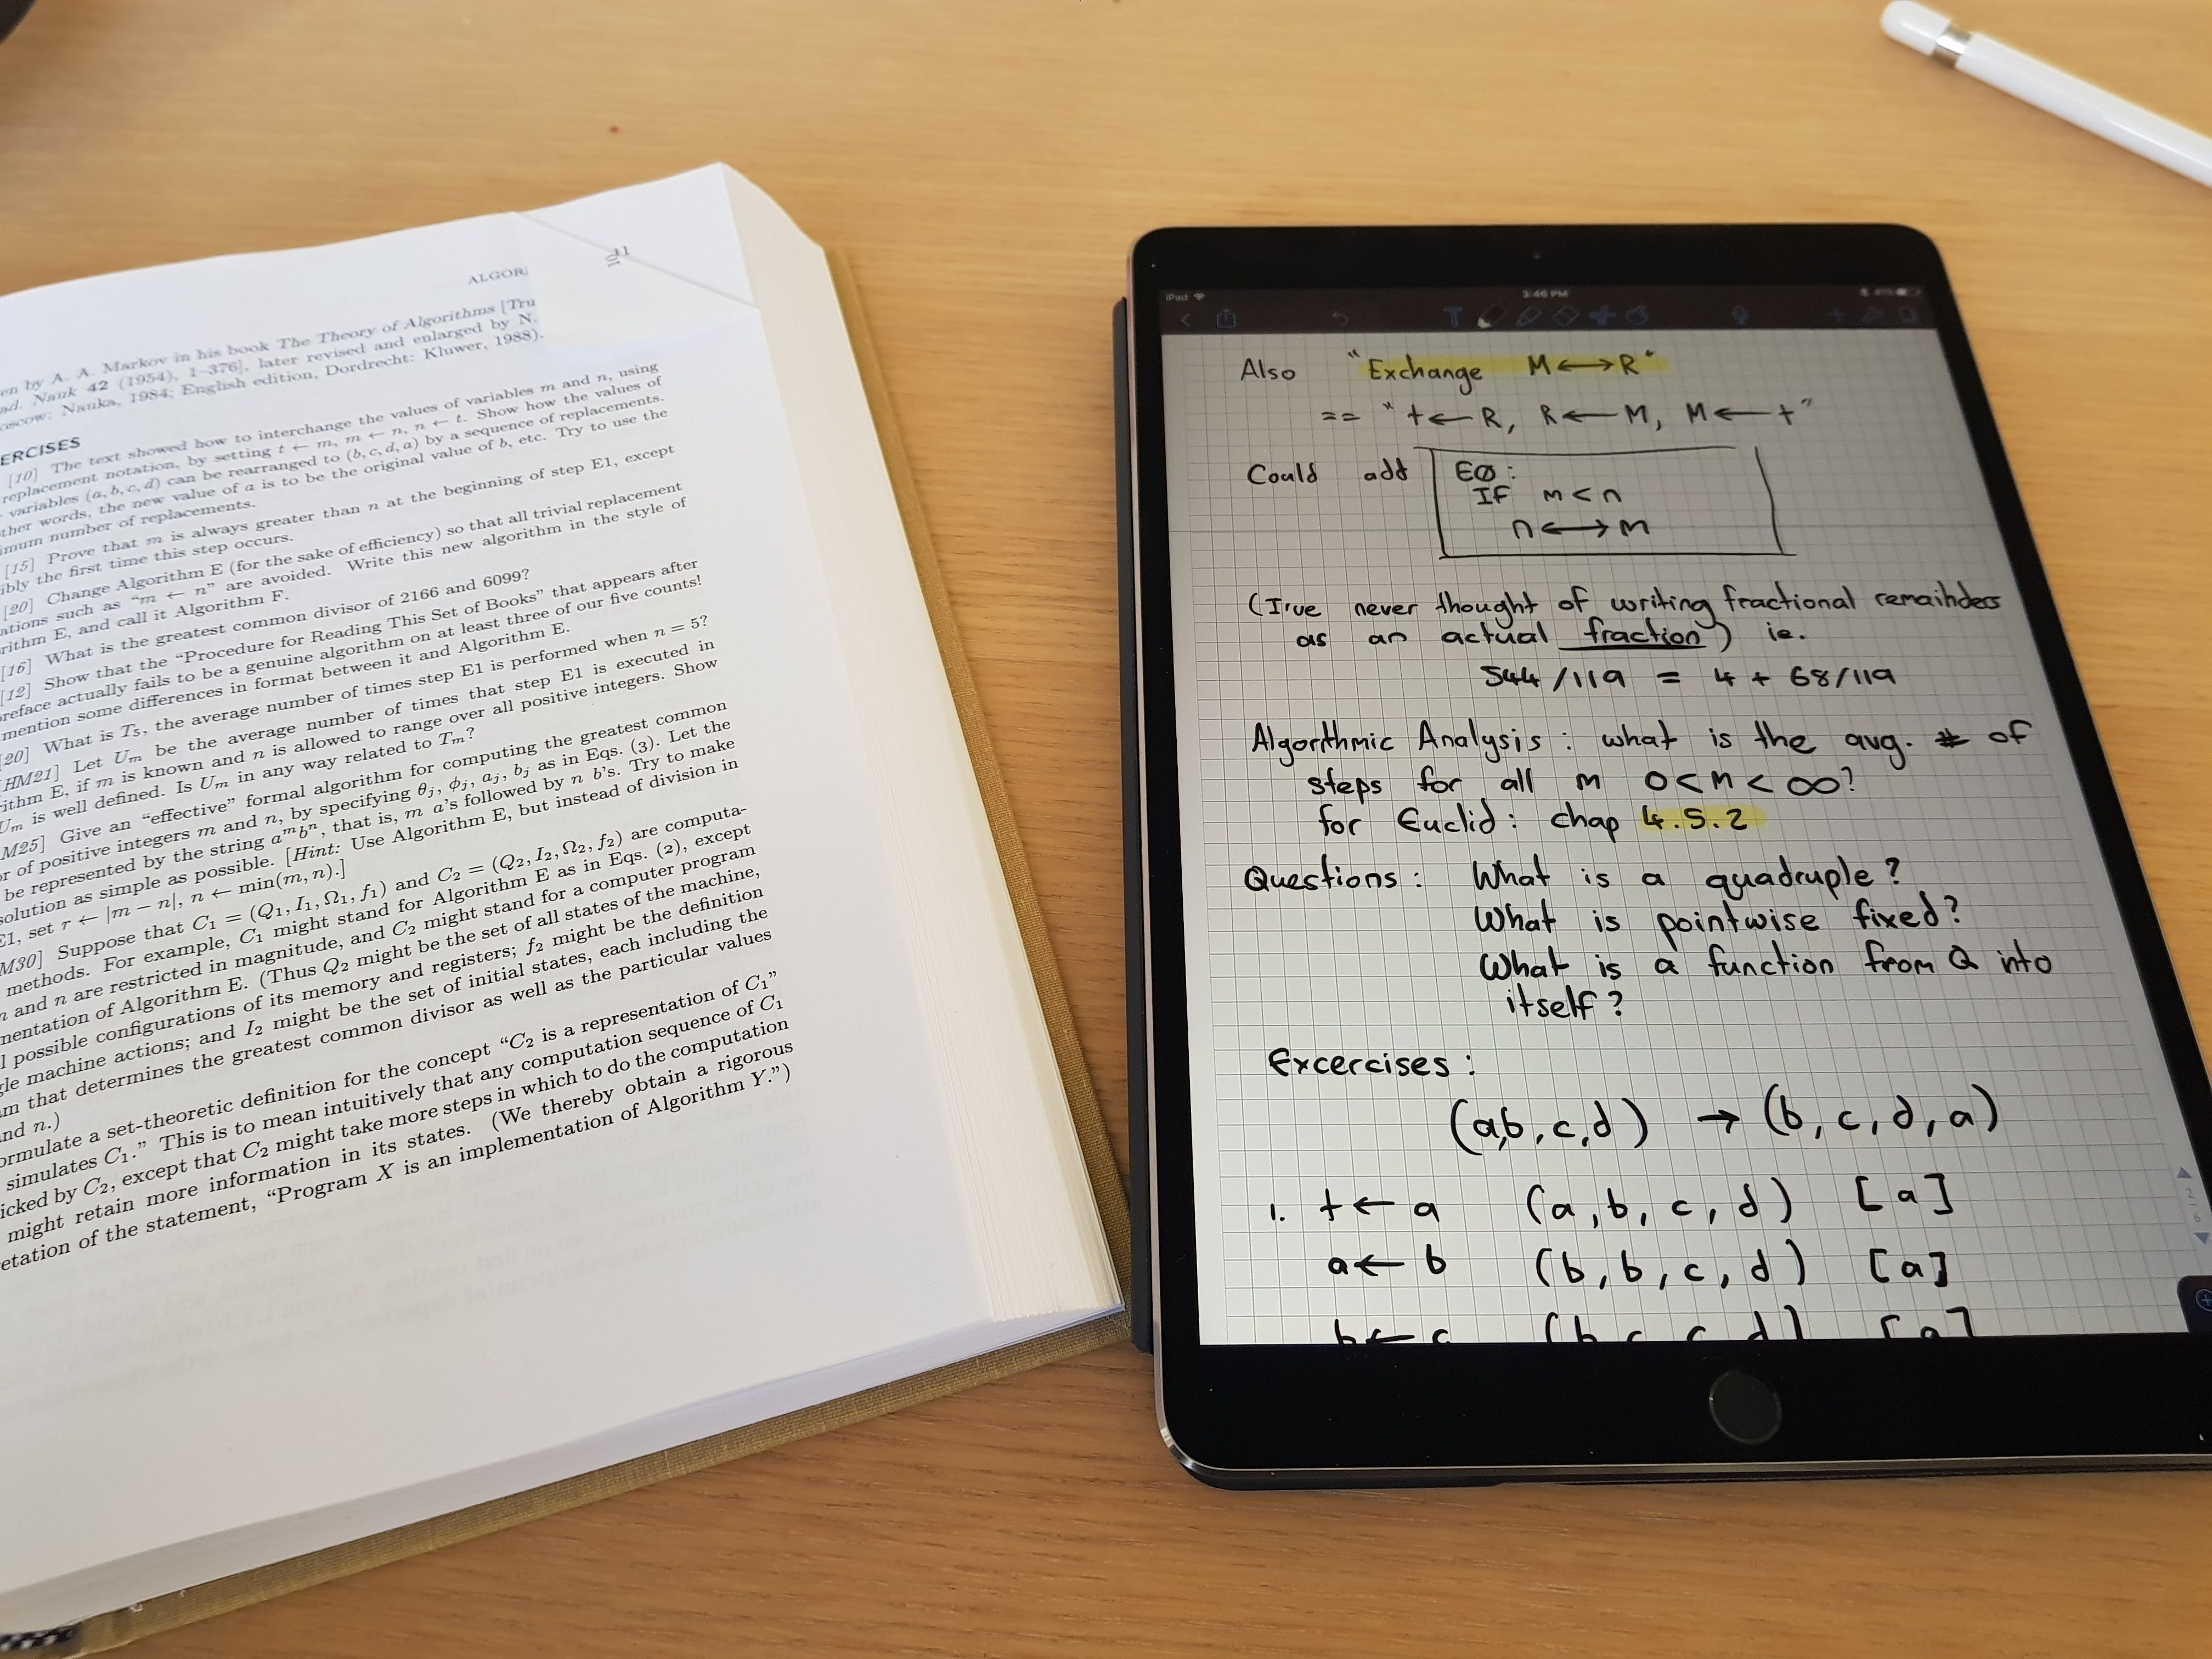 ALGOR
11
en by A. A. Markov in his book The Theory of Algorithms [Tru
ad. Nauk 42 (1954), 1–376], later revised and enlarged by N.
oscow: Nauka, 1984; English edition, Dordrecht: Kluwer, 1988).
ERCISES
[10] The text showed how to interchange the values of variables m and n, using
replacement notation, by setting t ← m, m ← n, n ← t. Show how the values of
variables (a, b, c, d) can be rearranged to (b, c, d, a) by a sequence of replacements.
ther words, the new value of a is to be the original value of b, etc. Try to use the
imum number of replacements.
[15] Prove that m is always greater than n at the beginning of step E1, except
ibly the first time this step occurs.
[20] Change Algorithm E (for the sake of efficiency) so that all trivial replacement
ations such as “m ← n” are avoided. Write this new algorithm in the style of
rithm E, and call it Algorithm F.
[16] What is the greatest common divisor of 2166 and 6099?
[12] Show that the “Procedure for Reading This Set of Books” that appears after
reface actually fails to be a genuine algorithm on at least three of our five counts!
mention some differences in format between it and Algorithm E.
20] What is T5, the average number of times step E1 is performed when n = 5?
HM21] Let Um be the average number of times that step E1 is executed in
ithm E, if m is known and n is allowed to range over all positive integers. Show
Um is well defined. Is Um in any way related to Tm?
M25] Give an “effective” formal algorithm for computing the greatest common
or of positive integers m and n, by specifying θj, ϕj, aj, bj as in Eqs. (3). Let the
be represented by the string a^m b^n, that is, m a's followed by n b's. Try to make
solution as simple as possible. [Hint: Use Algorithm E, but instead of division in
E1, set r ← |m − n|, n ← min(m, n).]
M30] Suppose that C1 = (Q1, I1, Ω1, f1) and C2 = (Q2, I2, Ω2, f2) are computa-
methods. For example, C1 might stand for Algorithm E as in Eqs. (2), except
n and n are restricted in magnitude, and C2 might stand for a computer program
mentation of Algorithm E. (Thus Q2 might be the set of all states of the machine,
l possible configurations of its memory and registers; f2 might be the definition
gle machine actions; and I2 might be the set of initial states, each including the
m that determines the greatest common divisor as well as the particular values
nd n.)
ormulate a set-theoretic definition for the concept “C2 is a representation of C1”
simulates C1.” This is to mean intuitively that any computation sequence of C1
icked by C2, except that C2 might take more steps in which to do the computation
might retain more information in its states. (We thereby obtain a rigorous
etation of the statement, “Program X is an implementation of Algorithm Y.”)
iPad
3:46 PM
Also "Exchange M ↔ R"
== "t ← R, R ← M, M ← t"
Could add EØ:
If m < n
n ↔ m
(I've never thought of writing fractional remainders
as an actual fraction) ie.
544/119 = 4 + 68/119
Algorithmic Analysis: what is the avg. # of
steps for all m 0 < m < ∞?
for Euclid: chap 4.5.2
Questions: What is a quadruple?
What is pointwise fixed?
What is a function from Q into
itself?
Excercises:
(a,b,c,d) → (b, c, d, a)
1. t ← a (a, b, c, d) [a]
a ← b (b, b, c, d) [a]
b ← c (b c c d) [a]